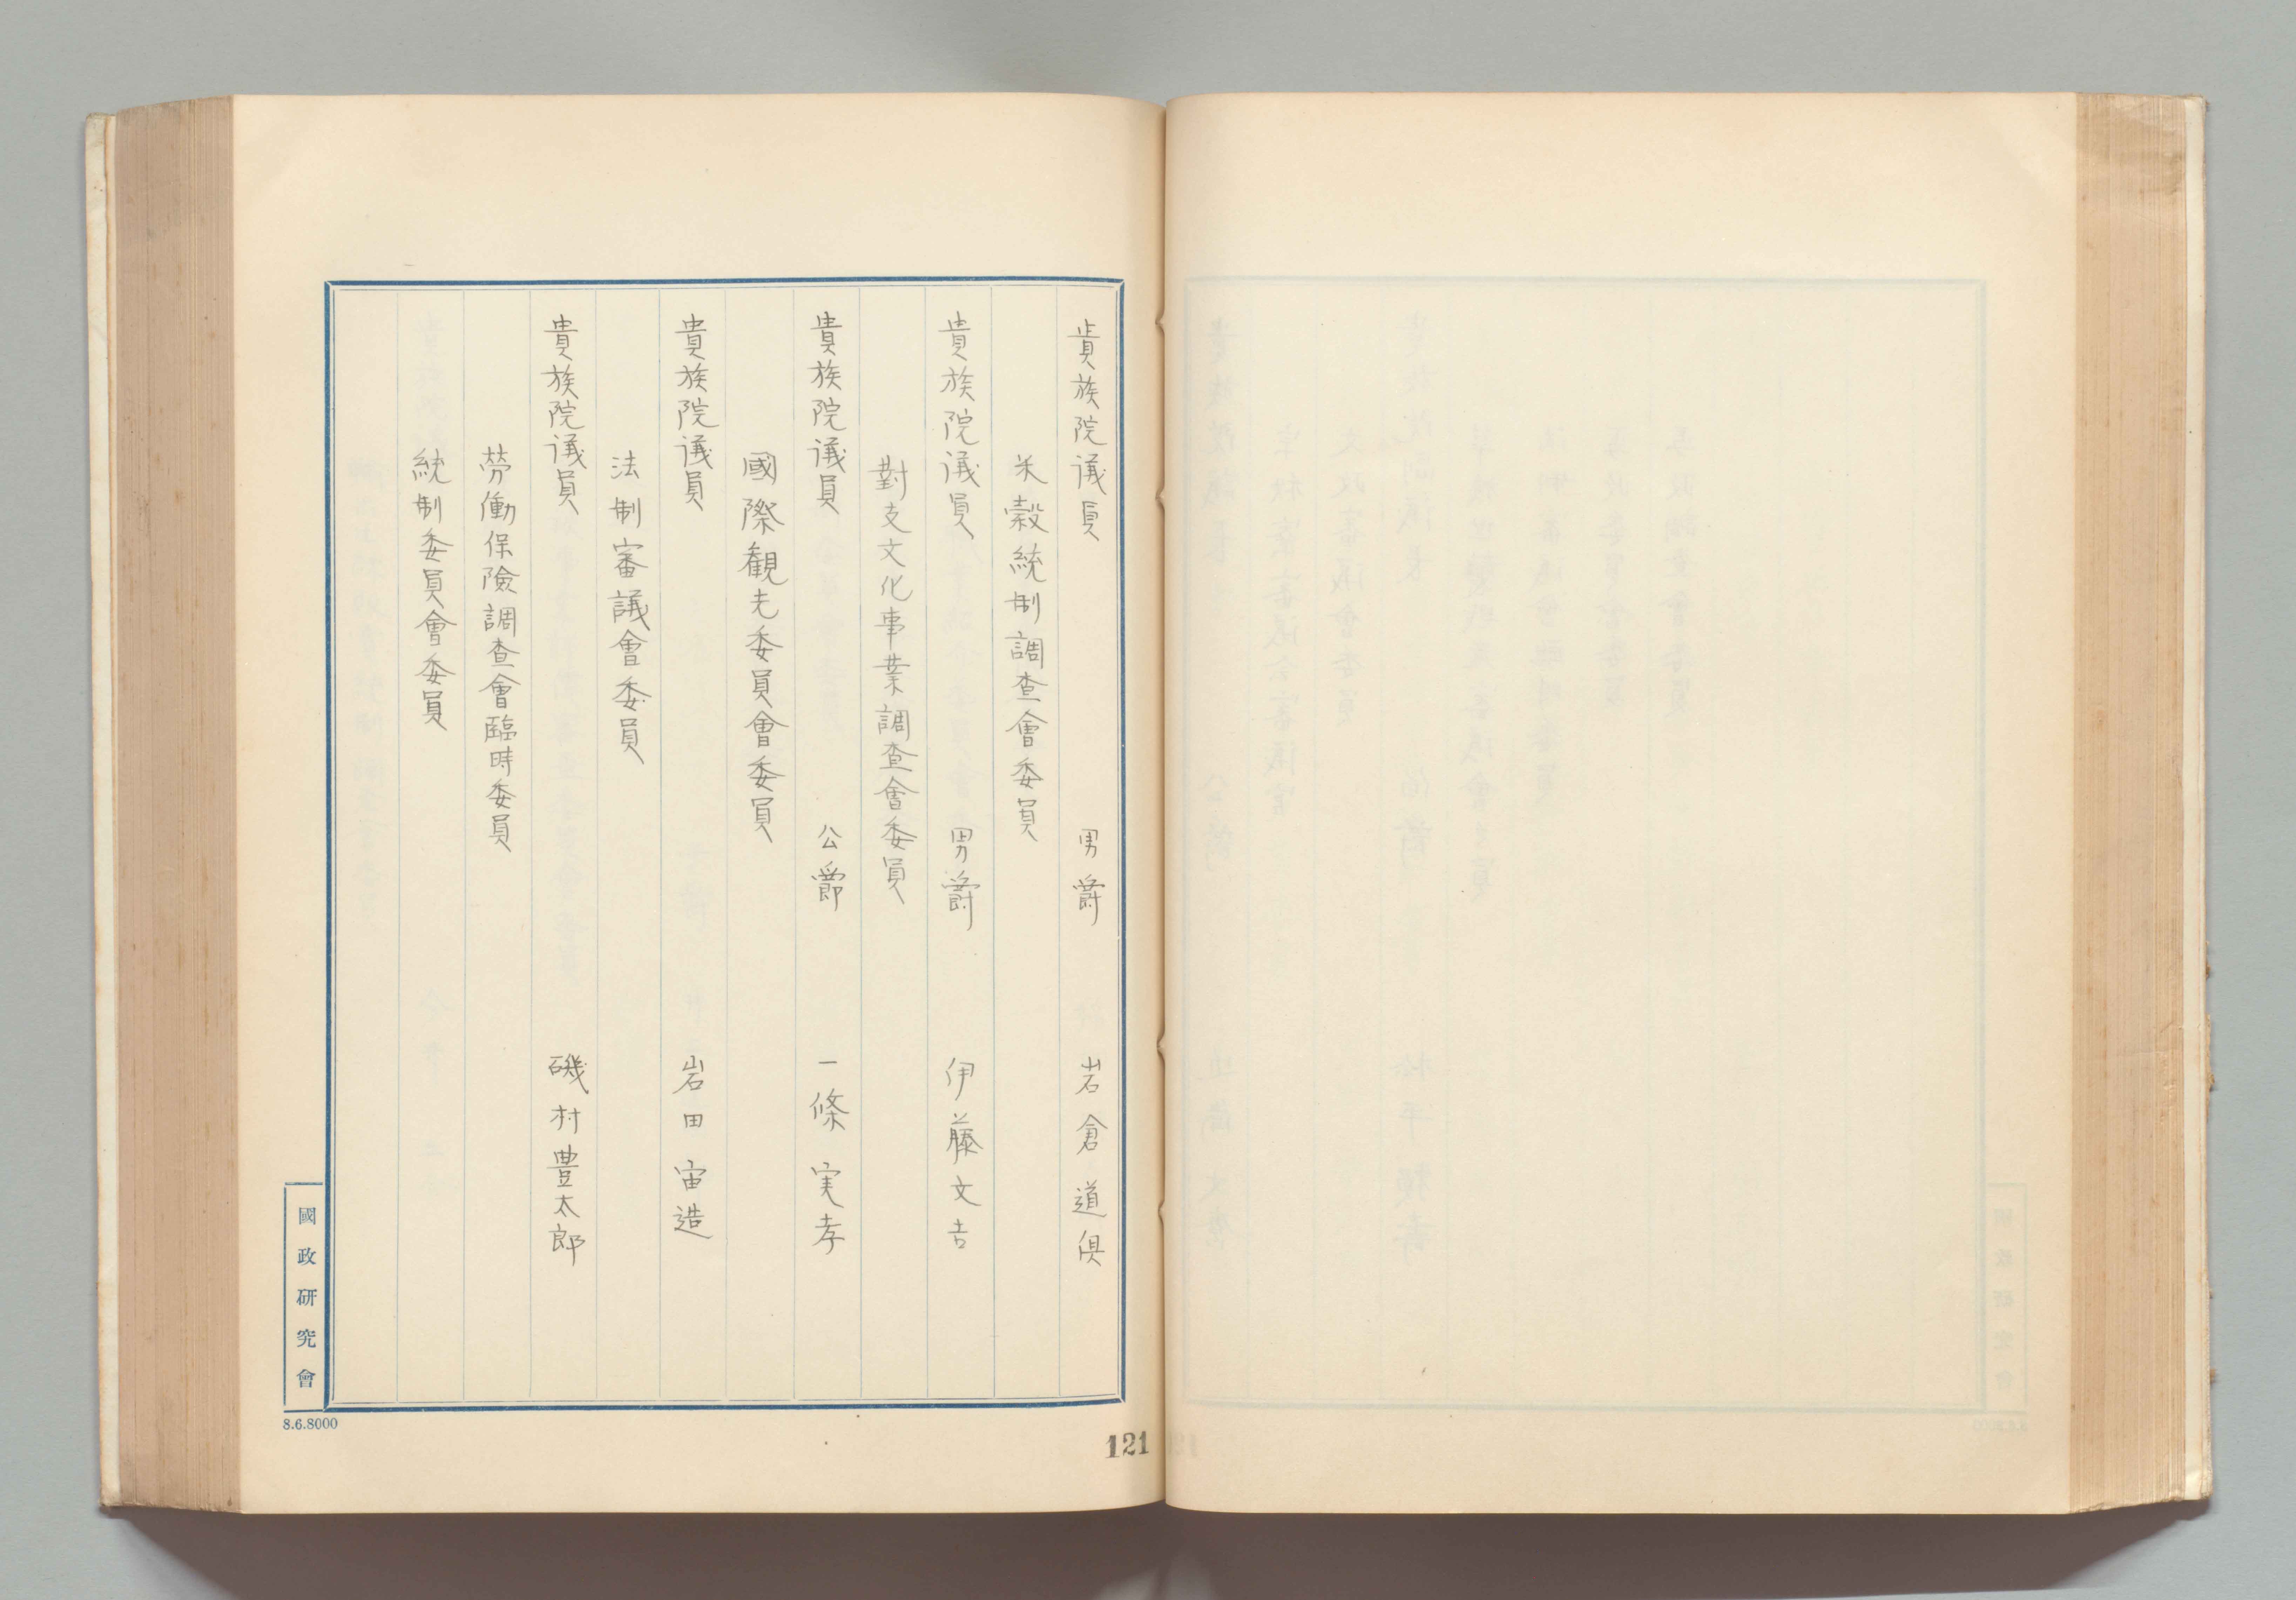 貴族院議員 男爵 岩倉道倶
米穀統制調査會委員
貴族院議員 男爵 伊藤文吉
對支文化事業調査會委員
貴族院議員 公爵 一條実孝
國際観光委員會委員
貴族院議員 岩田宙造
法制審議會委員
貴族院議員 磯村豊太郎
労働保險調査會臨時委員
統制委員會委員
國政研究會
8.6.8000
121